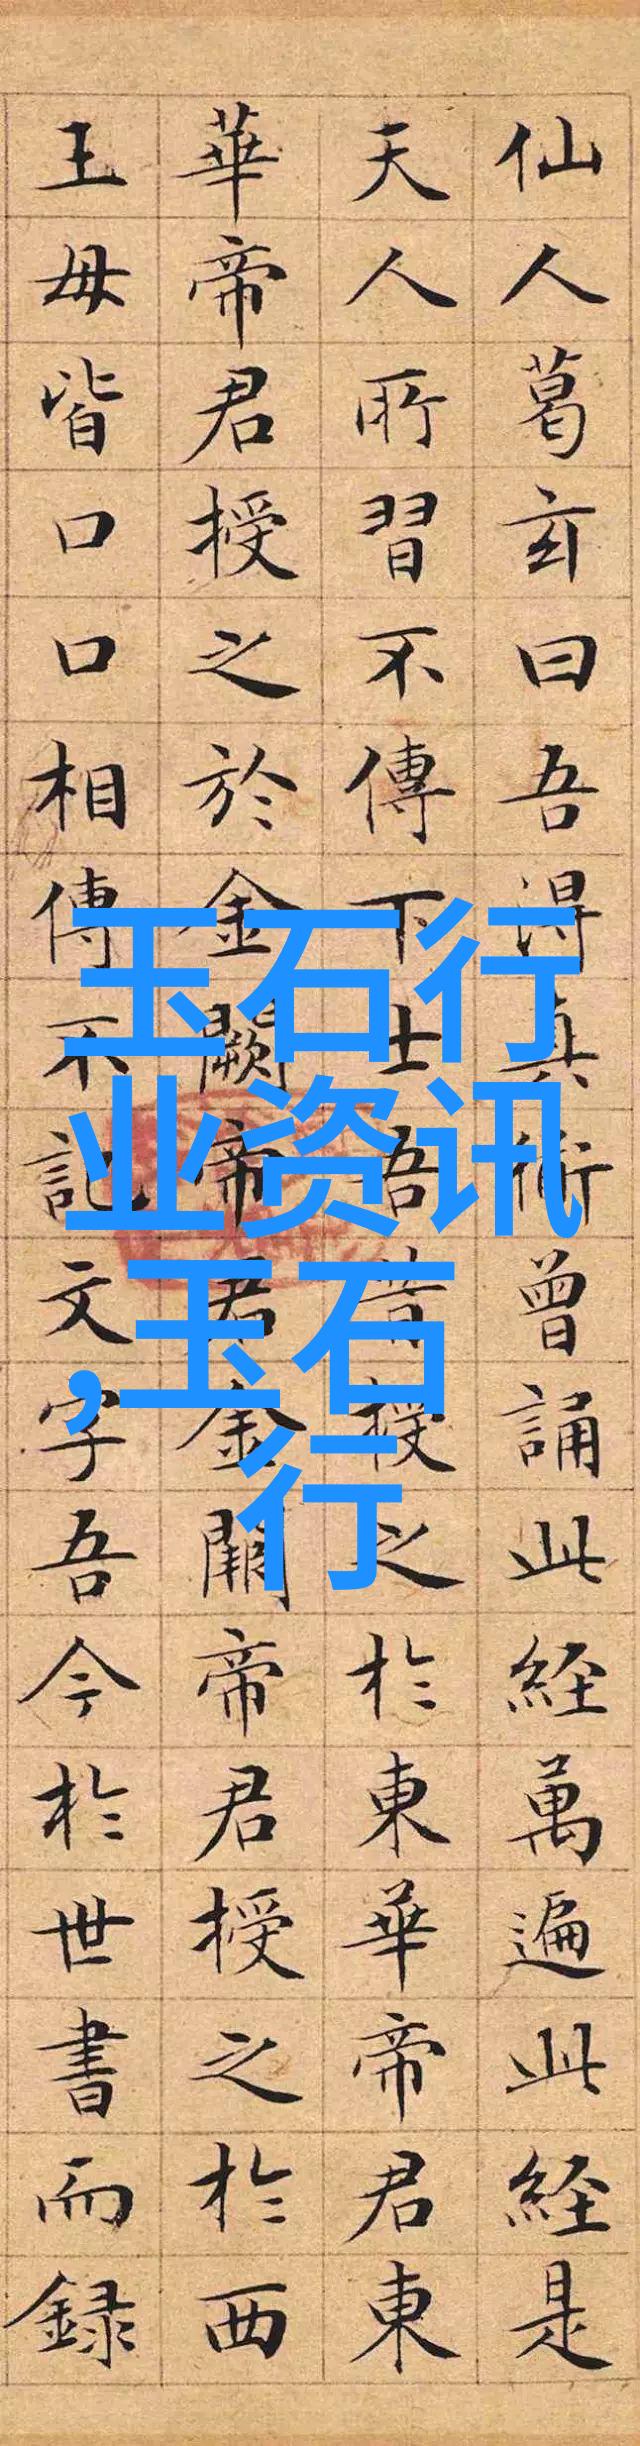 仙人葛玄曰吾得真術曾誦此経萬遍此経是
天人所習不傳下士吾昔授之於東華帝君東
華帝君授之於金闕帝君金闕帝君授之於西
王母皆口口相傳不記文字吾今於世書而録
玉石行
业资讯
,玉石
行